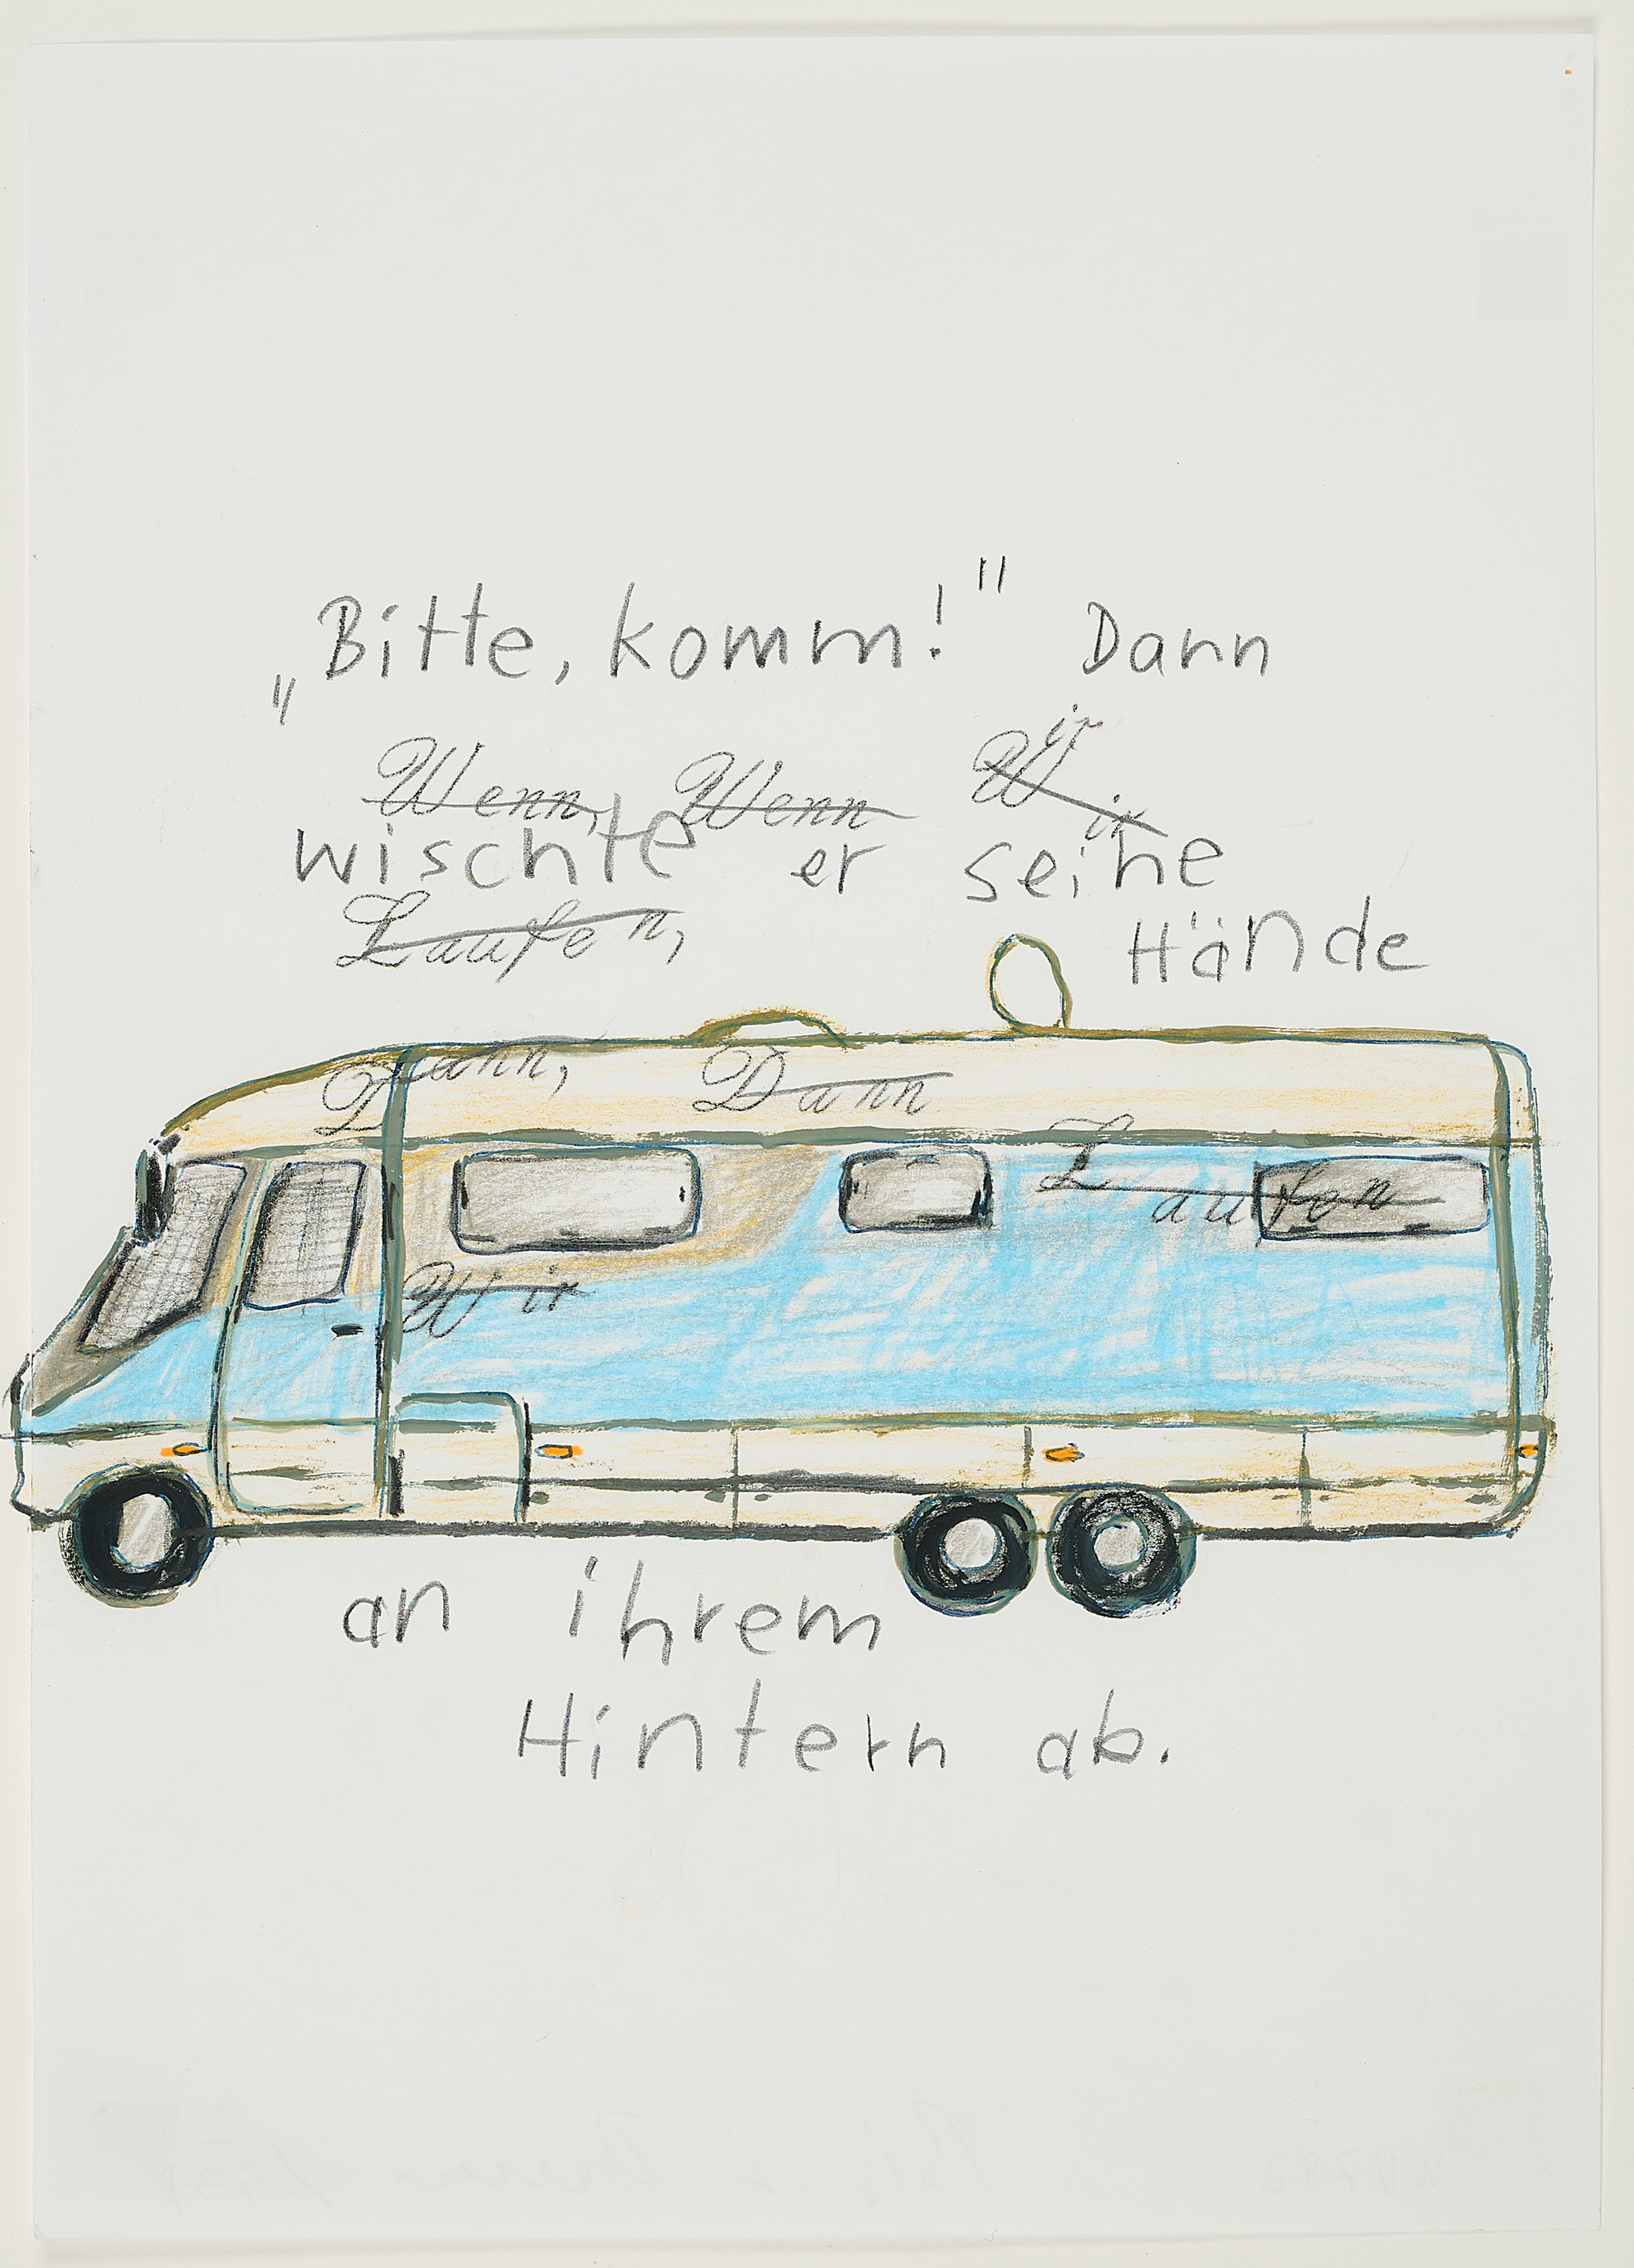 „Bitte, komm!" Dann
Wenn, Wenn Wir
ir
wischte er seine
Laufen,
Hände
Dann, Dann
Laufen
Wir
an ihrem
Hintern ab.